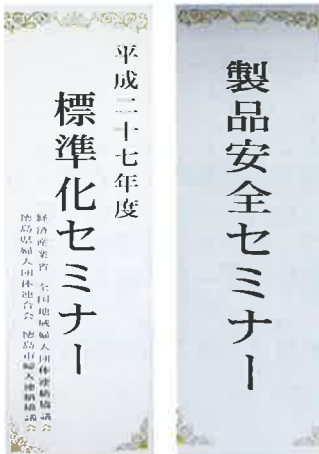 平成二十七年度
標準化セミナー
経済産業省 全国地域婦人団体連絡協議会
徳島県婦人団体連合会 徳島市婦人連絡協議会
製品安全セミナー